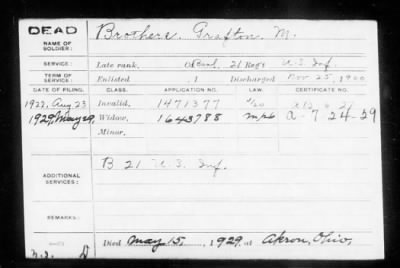 DEAD
NAME OF SOLDIER: Brothers, Grafton M.
SERVICE: Late rank, 21 Reg't U.S. Inf.
TERM OF SERVICE: Enlisted , 1 Discharged Nov 25, 1900
DATE OF FILING. CLASS. APPLICATION NO. LAW. CERTIFICATE NO.
1922, Aug. 23 Invalid, 1471377
1929, May 29, Widow, 1643788 A-7-24-29
Minor,
ADDITIONAL SERVICES: B 21 U.S. Inf.
REMARKS:
Died May 15, , 1929, at Akron, Ohio,